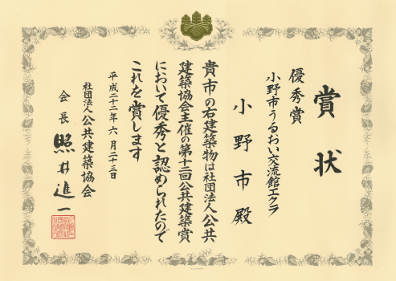 賞状
優秀賞
小野市うるおい交流館エクラ
小野市殿
貴市の右建築物は社団法人公共
建築協会主催の第十二回公共建築賞
において優秀と認められたので
これを賞します
平成二十二年六月二十三日
社団法人公共建築協会
会長 照井進一